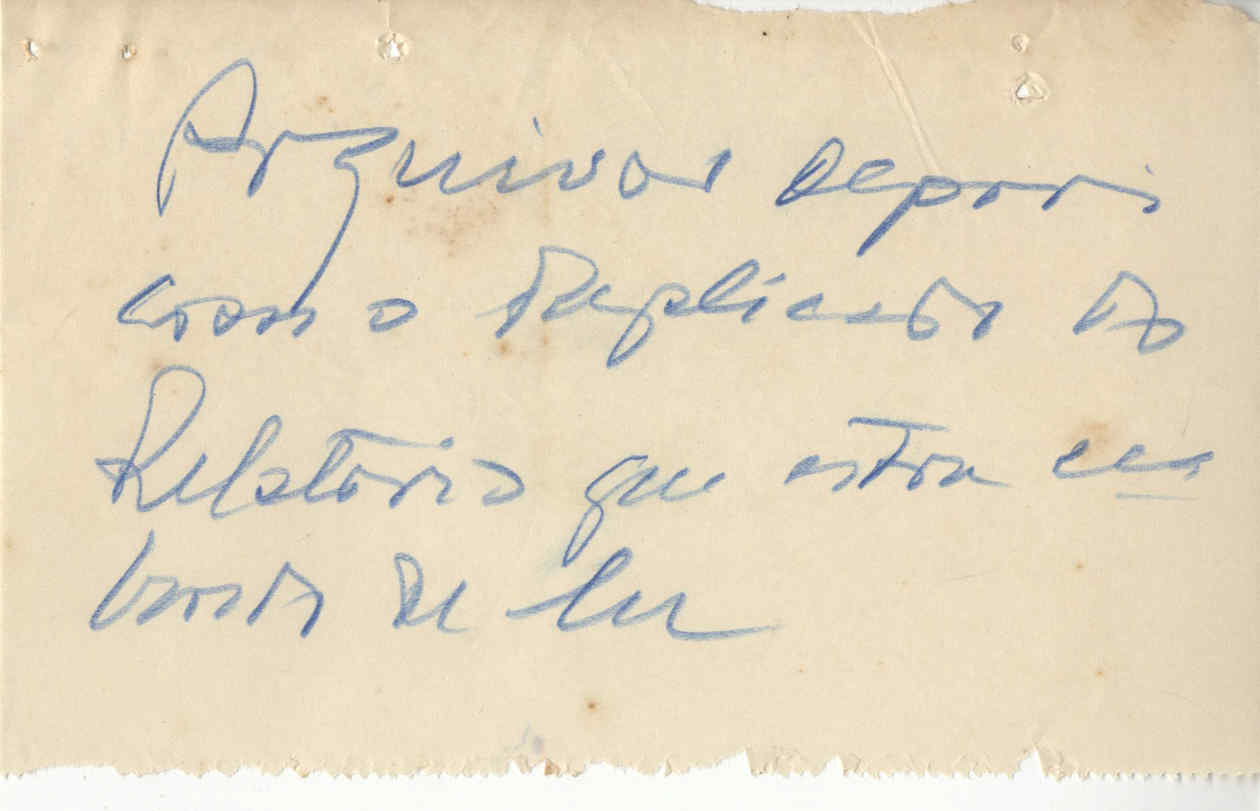 Arquivar depois
com o duplicado do
Relatório que estou
de ler